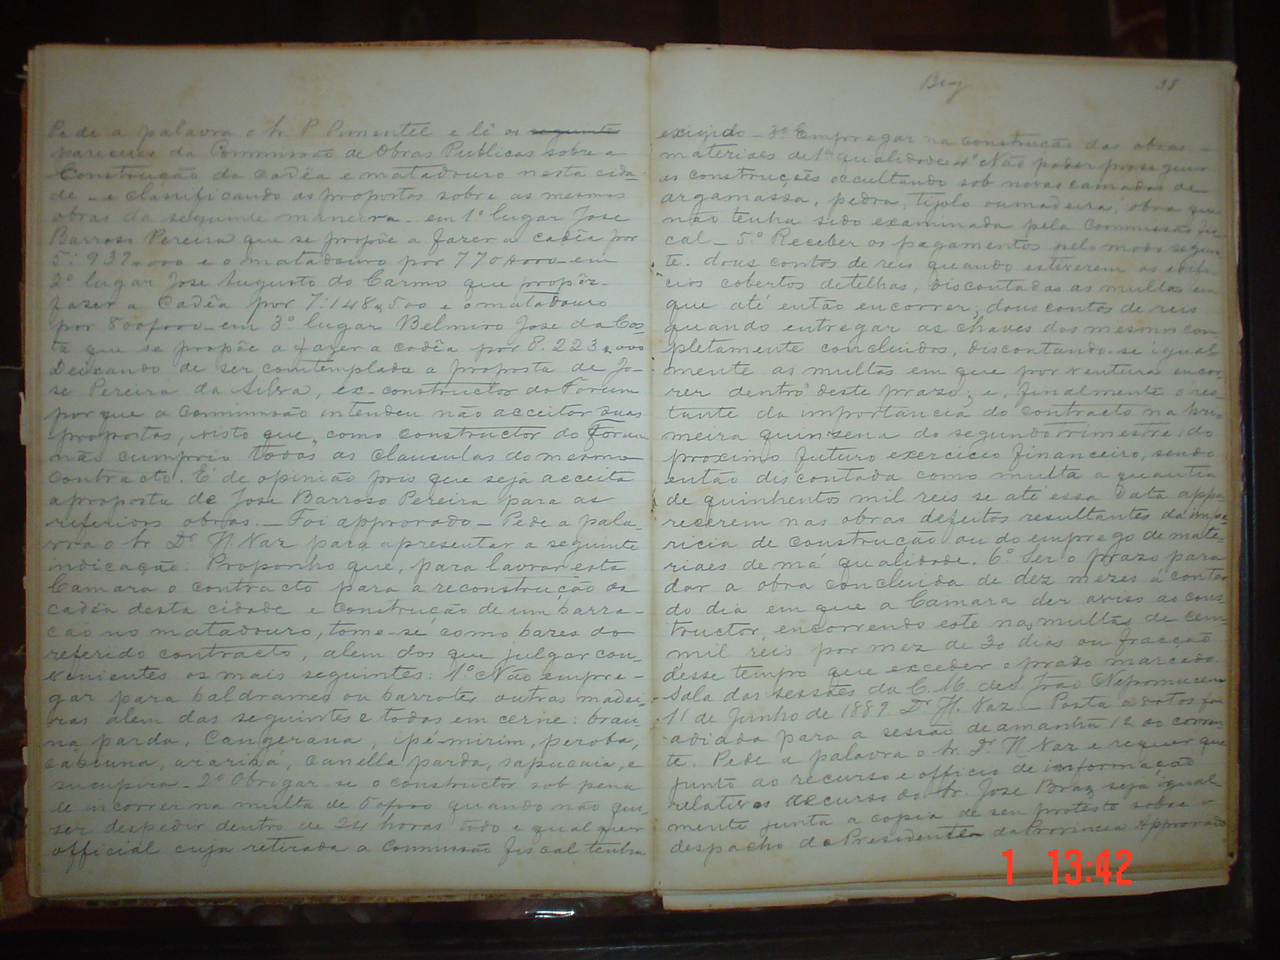 Pede a palavra o Sr. P. Pimentel e lê os seguinte
pareceres da Commissão de Obras Publicas sobre a
Construcção da Cadêa e matadouro nesta cida-
de - e classificando as propostas sobre as mesmas
obras da seguinte maneira - em 1º lugar José
Barroso Pereira que se propõe a fazer a cadêa por
5:937,000 e o matadouro por 770$000 - em
2º lugar José Augusto do Carmo que propõe
fazer a Cadêa por 7:148,500 e o matadouro
por 800$000 - em 3º lugar Belmiro José da Cos-
ta que se propõe a fazer a cadêa por 8:223,000
Deixando de ser comtemplada a proposta de Jo-
sé Pereira da Silva, ex-constructor do Forum
por que a commissão intendeu não acceitar suas
propostas, visto que, como constructor do Forum
não cumprio todas as clausulas do mesmo
contracto. É de opinião pois que seja acceita
a proposta de José Barroso Pereira para as
referidas obras. - Foi approvado - Pede a pala-
vra o Sr. Dr. H. Vaz para apresentar a seguinte
indicação: Proponho que, para lavrar esta
Camara o contracto para a reconstrucção da
cadêa desta cidade e construcção de um barra-
cão no matadouro, tome-se como bazes do
referido contracto, alem dos que julgar con-
venientes os mais seguintes: 1º Não empre-
gar para baldrames ou barrotes outras madei-
ras alem das seguintes e todas em cerne: brau-
na parda, Cangerana, ipé-mirim, peroba,
cabiuna, araribá, canella parda, sapucaia, e
sucupira - 2º Obrigar se o constructor sob pena
de incorrer na multa de 50$000 quando não qui-
ser despedir dentro de 24 horas todo e qualquer
official cuja retirada a Commissão fiscal tenha
38
exigido - 3º Empregar na construcção das obras -
materiaes de 1ª qualidade 4º Não poder proseguir
as construcções occultando sob novas camadas de
argamassa, pedra, tijolo ou madeira, obra que
não tenha sido examinada pela Commissão fis-
cal - 5º Receber os pagamentos pelo modo seguin-
te: dous contos de reis quando estiverem os edifi-
cios cobertos de telhas, discontadas as multas em
que até então encorrer; dous contos de reis
quando entregar as chaves dos mesmos com-
pletamente concluidos, discontando-se igual-
mente as multas em que por ventura encor-
rer dentro deste praso; e, finalmente o res-
tante da importancia do contracto na pri-
meira quinsena do segundo trimestre do
proximo futuro exercicio financeiro, sendo
então discontada como multa a quantia
de quinhentos mil reis se até essa data appa-
recerem nas obras defeitos resultantes da impe-
ricia de construcção ou do emprego de mate-
riaes de má qualidade. 6º Ser o prazo para
dar a obra concluida de dez mezes a contar
do dia em que a Camara der aviso ao cons-
tructor, encorrendo este nas multas de cem
mil reis por mez de 30 dias ou fracção
desse tempo que exceder o prazo marcado.
Sala das sessões da C. M. de S. João Nepomuceno
11 de Junho de 1889 Dr. H. Vaz - Posta a votos foi
adiada para a sessão de amanhã 12 do corren-
te. Pede a palavra o Sr. Dr. H. Vaz e requer que
junto ao recurso e officio de informação
relativos recurso do Sr. José Braz seja igual-
mente junta a copia de seu protesto sobre o
despacho do Presidente da Provincia Approvado
1 13:42